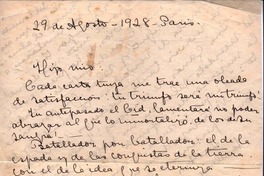 29 de Agosto - 1928 - Paris.
Hijo mio:
Cada carta tuya me trae una oleada
de satisfacción. Tu triunfo será mi triunfo.
Tu antepasado el Cid, lamentará no poder
abrazar al que lo inmortalizó, de los de su
sangre!
Batallador por batallador: el de la
espada y de las conquistas de la tierra
con el de la idea que se eterniza